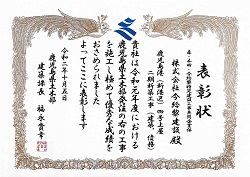 表彰状
株式会社今給黎建設殿
鹿児島港(新港区)四号上屋
二期新築工事(建築、債務)
貴社は令和元年度における
鹿児島県土木部発注の右の工事
を施工し極めて優秀な成績を
おさめられました
よってここに表彰します
令和二年十月五日
鹿児島県土木部
建築課長 福永貴幸